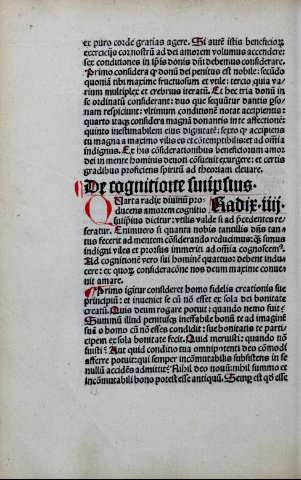 ex puro corde gratias agere. Si aut̄ istis beneficijs
exercerijs cor nostrū ad dei amorem volumus accendere:
sex conditiones in ip̄is donis dn̄i debemus considerare.
Primo considera ꝙ donū dei penitus est nobile: secūdo
quoniā tibi maxime fructuosum et vtile: tercio quia va
rium multiplex et crebrius iteratū. Et hec tria donū in
se ordinatū considerant: duo que sequūtur dantis p̄so
nam respiciunt: vltimum conditionē notat accipientis:
quarto itaqꝫ considera magnā donantis in te affectionē:
quinto inestimabilem eius dignitatē: sexto ꝙ accipiens
tu magna a maximo vilis es et cōtemptibilis et ad om̄ia
indignus. Ex his considerationibus beneficiorum amor
dei in mente hominis deuoti cōsueuit exurgere: et certis
gradibus proficiens spiritū ad theoriam eleuare.
De cognitione suiipsius.
Quarta radix diuinū pro Radix.iiij.
ducens amorem cognitio
suiip̄ius dicitur: vtilis valde si ad p̄cedentes re
feratur. Enimuero si quanta nobis tantillis dn̄s tan
tus fecerit ad mentem cōsiderando reducimus: qꝫ sumus
indigni viles et prorsus immeriti ad om̄ia cognoscemꝰ.
Ad cognitionē vero sui hominē quattuor debent indu
cere: ex quoꝝ consideracōne nos deum maxime conue
nit amare.
Primo igitur consideret homo fidelis creationis sue
principiū: et inueniet se cū nō esset ex sola dei bonitate
creatū. Quis deum rogare potuit: quando nemo fuit?
Summū illud penitusqꝫ ineffabile bonū te ad imaginē
suā o homo cū nō esses condidit: sue bonitatis te parti
cipem ex sola bonitate fecit. Quid meruisti: quando nō
fuisti? Aut quid conditio tua omnipotenti deo cōmodi
afferre potuit: qui semper incōmutabilis subsistens in se
nullū accidēs admittit? Nihil deo nouū: nihil summo et
incōmutabili bono potest esse antiquū. Semꝑ est qd̄ esse